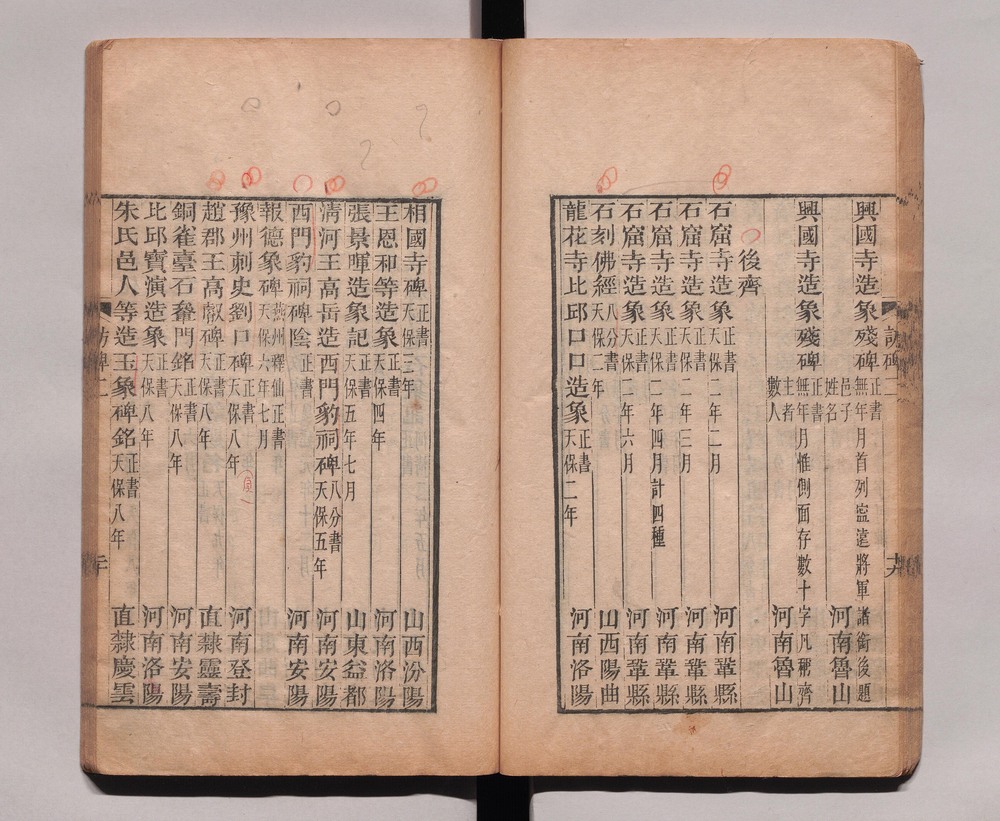 興國寺造象殘碑正書無年月首列寧遠將軍諸銜後題
邑子姓名 河南魯山
興國寺造象殘碑正書無年月惟側面存數十字凡稱齊
主者數人 河南魯山
後齊
石窟寺造象正書天保二年二月 河南鞏縣
石窟寺造象正書天保二年三月 河南鞏縣
石窟寺造象正書天保二年四月計四種 河南鞏縣
石窟寺造象正書天保二年六月 河南鞏縣
石刻佛經八分書天保二年 山西陽曲
龍花寺比邱口口造象正書天保二年 河南洛陽
訪碑二 十九
相國寺碑正書天保三年 山西汾陽
王恩和等造象正書天保四年 河南洛陽
張景暉造象記正書天保五年七月 山東益都
清河王高岳造西門豹祠碑八分書天保五年 河南安陽
西門豹祠碑陰正書 河南安陽
報德象碑燕州釋仙正書天保六年七月
豫州刺史劉口碑正書天保八年 河南登封
趙郡王高叡碑正書天保八年 直隸靈壽
銅雀臺石龕門銘正書天保八年 河南安陽
比邱寶演造象正書天保八年 河南洛陽
朱氏邑人等造玉象碑銘正書天保八年 直隸慶雲
訪碑二 二十